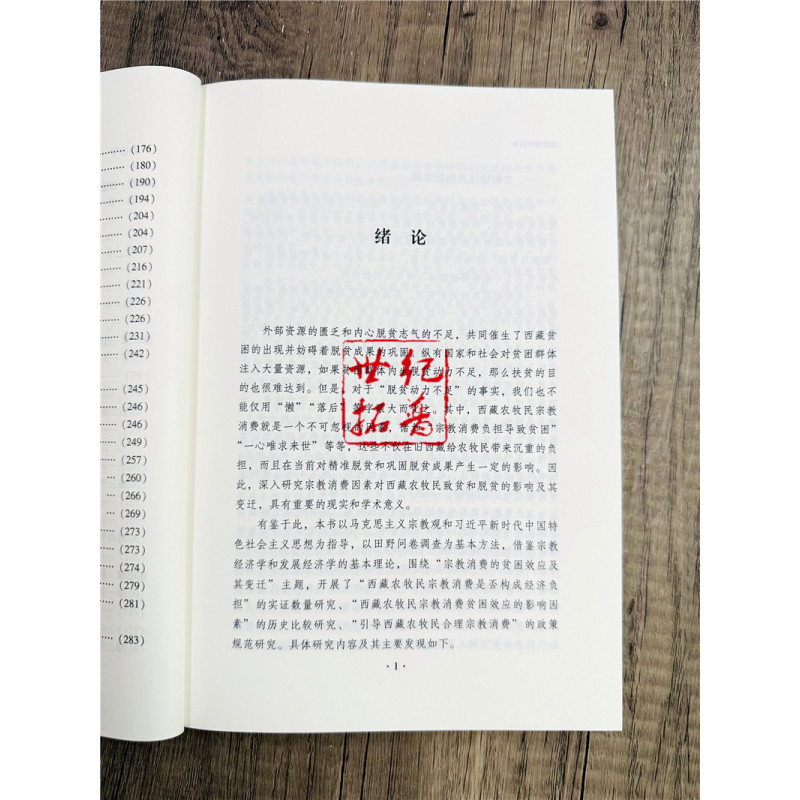 (176)
(180)
(190)
(194)
(204)
(204)
(207)
(216)
(221)
(226)
(226)
(231)
(242)
(245)
(246)
(246)
(249)
(257)
(260)
(266)
(269)
(273)
(273)
(274)
(279)
(281)
(283)
绪 论
外部资源的匮乏和内心脱贫志气的不足，共同催生了西藏贫
困的出现并妨碍着脱贫成果的巩固。纵有国家和社会对贫困群体
注入大量资源，如果贫困群体内生脱贫动力不足，那么扶贫的目
的也很难达到。但是，对于“脱贫动力不足”的事实，我们也不
能仅用“懒”“落后”等字眼大而化之。其中，西藏农牧民宗教
消费就是一个不可忽视的因素，诸如“宗教消费负担导致贫困”
“一心唯求来世”等等，这些不仅在旧西藏给农牧民带来沉重的负
担，而且在当前对精准脱贫和巩固脱贫成果产生一定的影响。因
此，深入研究宗教消费因素对西藏农牧民致贫和脱贫的影响及其
变迁，具有重要的现实和学术意义。
有鉴于此，本书以马克思主义宗教观和习近平新时代中国特
色社会主义思想为指导，以田野问卷调查为基本方法，借鉴宗教
经济学和发展经济学的基本理论，围绕“宗教消费的贫困效应及
其变迁”主题，开展了“西藏农牧民宗教消费是否构成经济负
担”的实证数量研究、“西藏农牧民宗教消费贫困效应的影响因
素”的历史比较研究、“引导西藏农牧民合理宗教消费”的政策
规范研究。具体研究内容及其主要发现如下。
· 1 ·
世纪
拓普